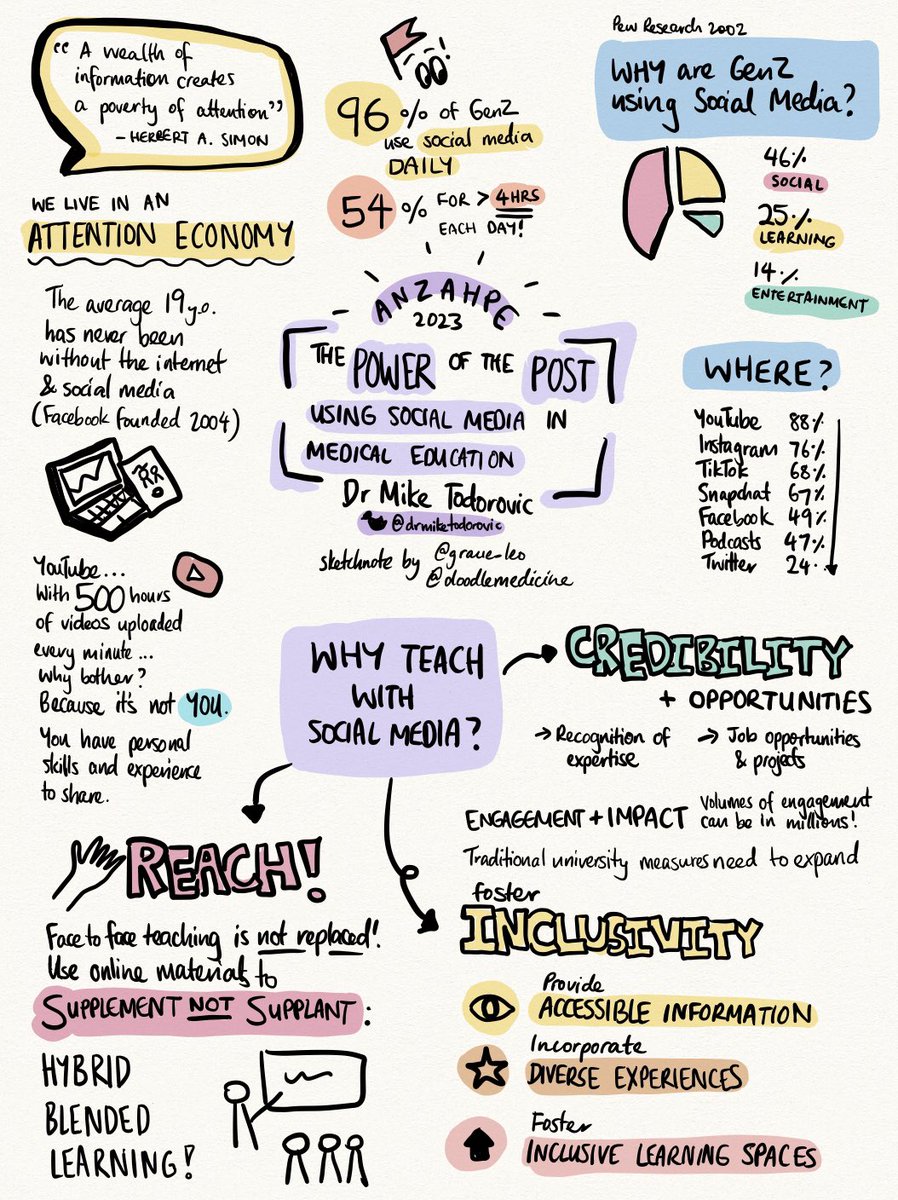 “A wealth of
information creates
a poverty of attention”
- HERBERT A. SIMON
WE LIVE IN AN
ATTENTION ECONOMY
The average 19 y.o.
has never been
without the internet
& social media
(Facebook founded 2004)
YouTube...
With 500 hours
of videos uploaded
every minute...
why bother?
Because it's not YOU.
You have personal
skills and experience
to share.
96% of GenZ
use social media
DAILY
54% FOR > 4HRS
EACH DAY!
Pew Research 2002
WHY are GenZ
using Social Media?
46%
SOCIAL
25%
LEARNING
14%
ENTERTAINMENT
ANZAHPE
2023
THE POWER OF THE POST
USING SOCIAL MEDIA IN
MEDICAL EDUCATION
Dr Mike Todorovic
@drmiketodorovic
sketchnote by @grace_leo
@doodlemedicine
WHERE?
YouTube 88%
Instagram 76%
TikTok 68%
Snapchat 67%
Facebook 49%
Podcasts 47%
Twitter 24%
WHY TEACH
WITH
SOCIAL MEDIA?
CREDIBILITY
+ OPPORTUNITIES
→ Recognition of
expertise
→ Job opportunities
& projects
ENGAGEMENT + IMPACT
Volumes of engagement
can be in millions!
Traditional university measures need to expand
REACH!
Face to face teaching is not replaced!
Use online materials to
SUPPLEMENT NOT SUPPLANT:
HYBRID
BLENDED
LEARNING!
foster
INCLUSIVITY
Provide
ACCESSIBLE INFORMATION
Incorporate
DIVERSE EXPERIENCES
Foster
INCLUSIVE LEARNING SPACES